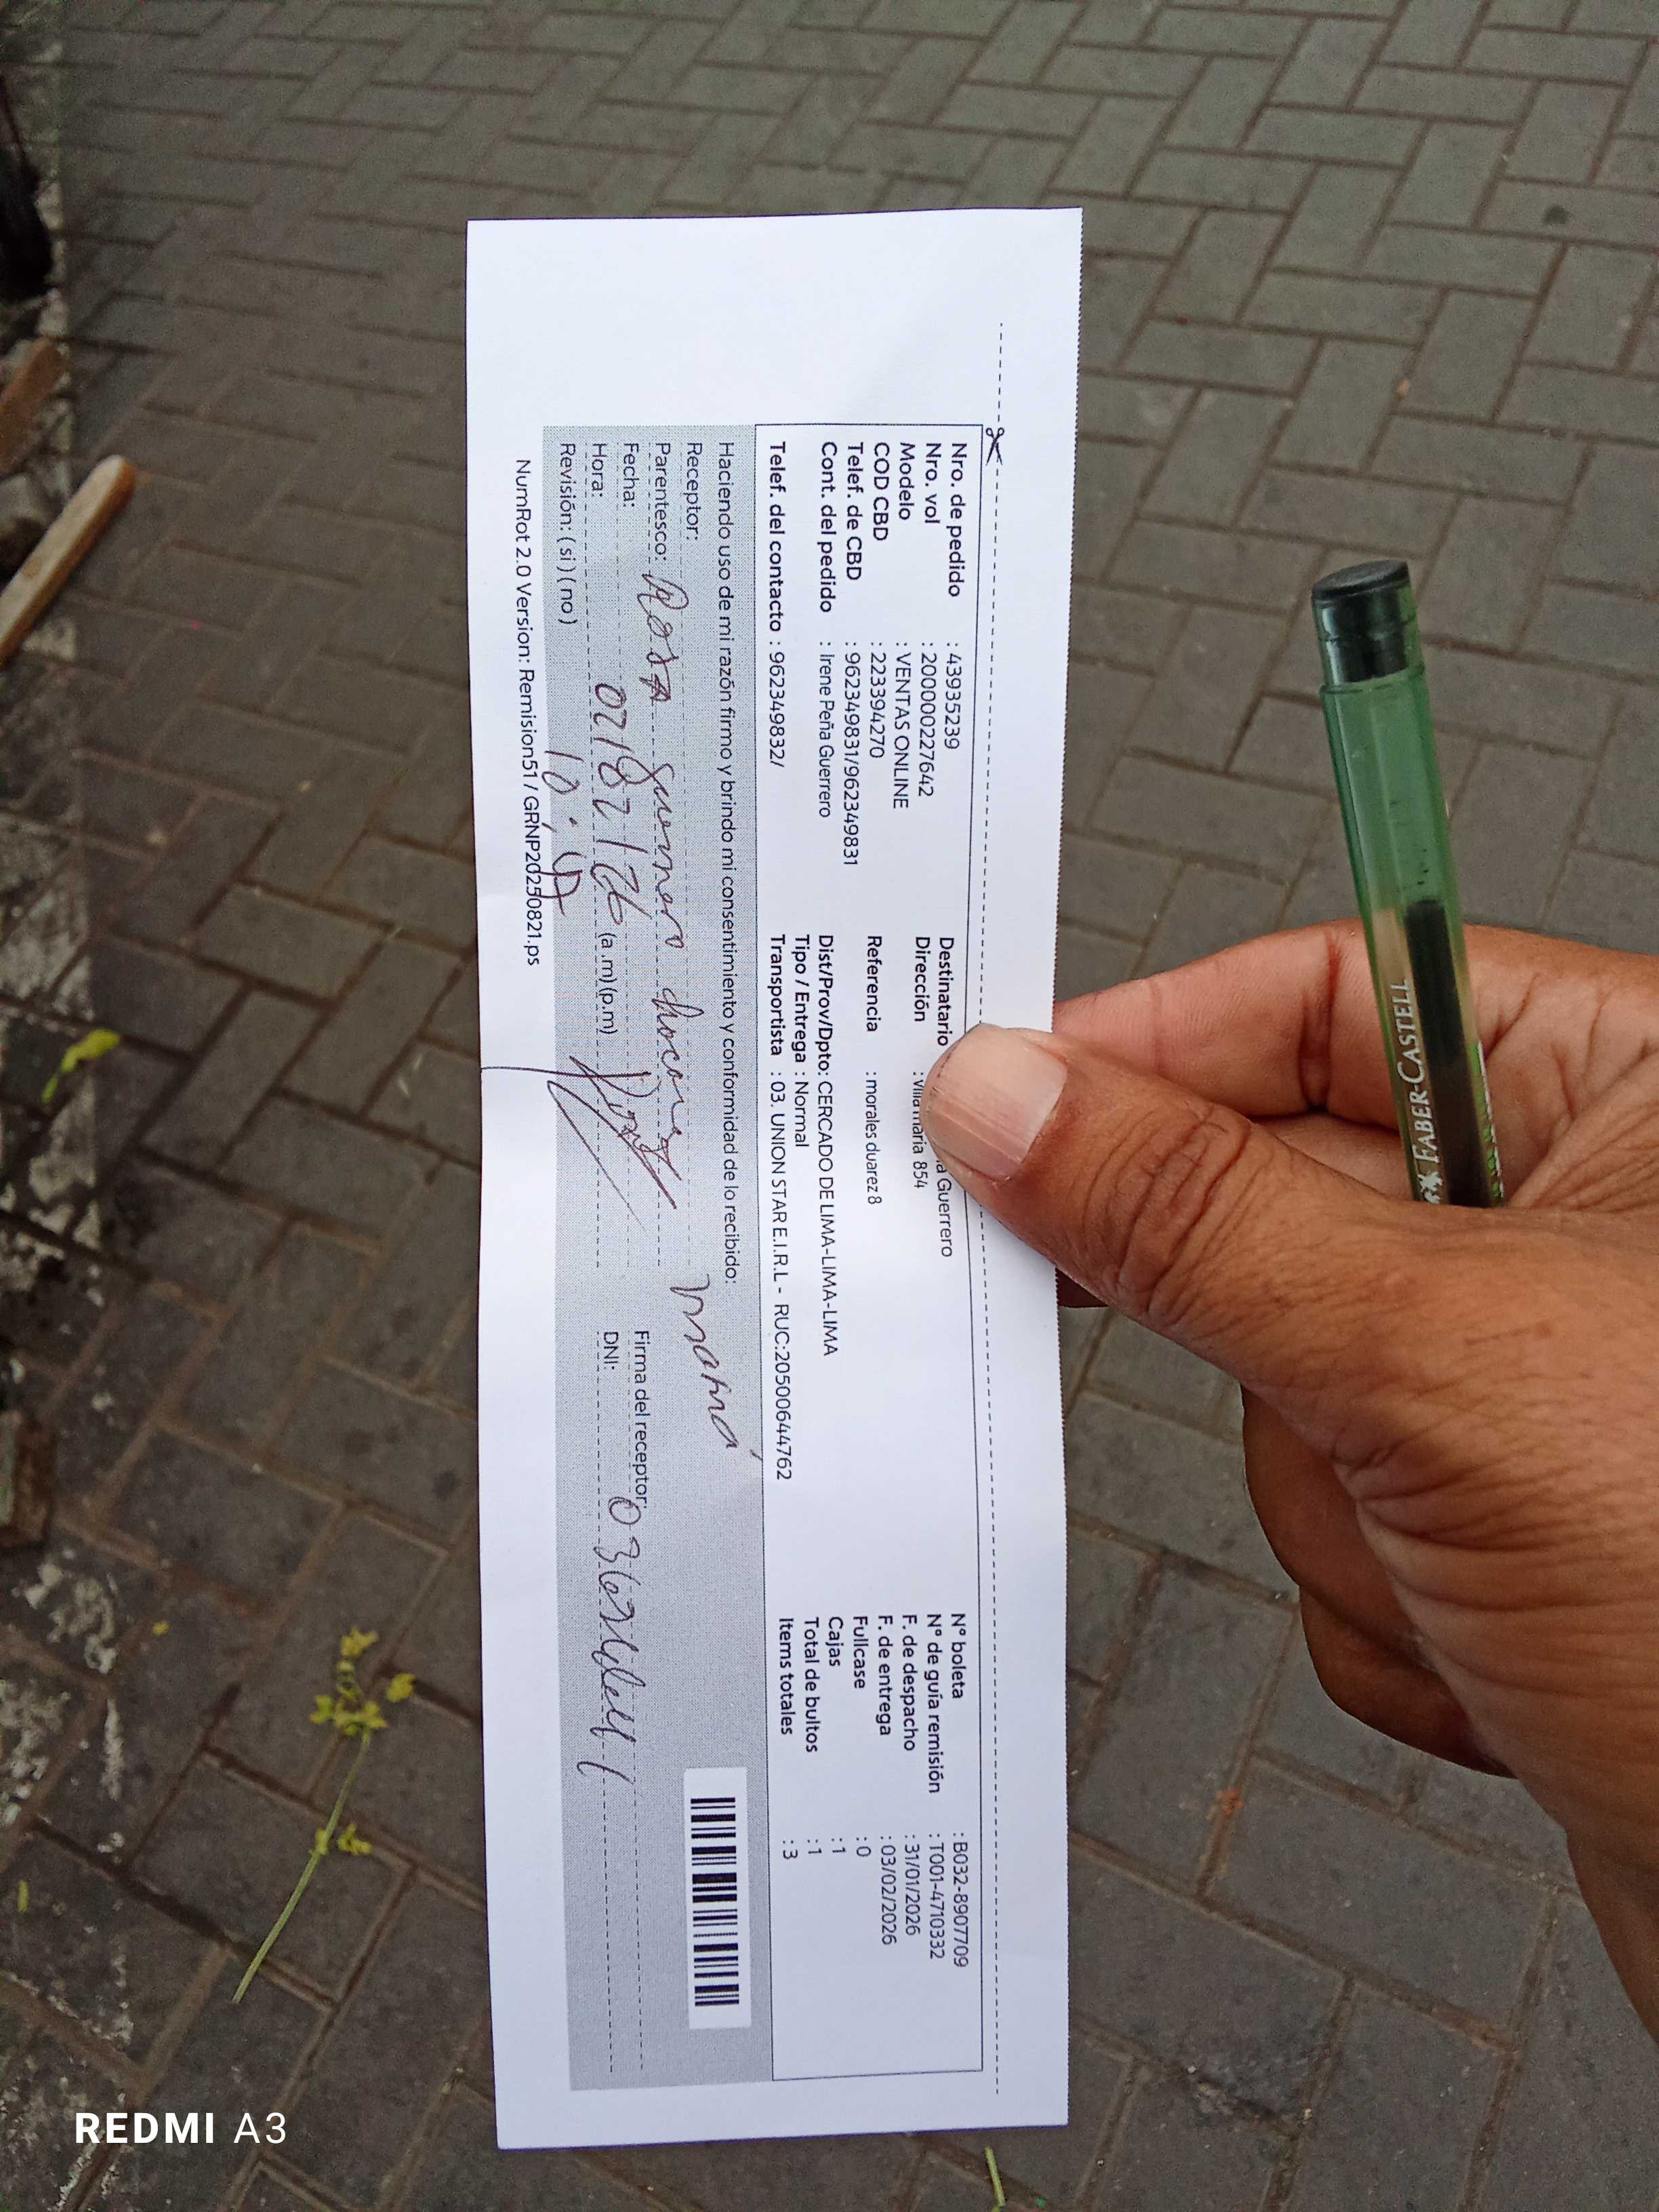 Nro. de pedido : 43935239
Nro. vol : 200000227642
Modelo : VENTAS ONLINE
COD CBD : 223394270
Telef. de CBD : 962349831/962349831
Cont. del pedido : Irene Peña Guerrero
Telef. del contacto : 962349832/
Destinatario Guerrero
Dirección : Villa maria 854
Referencia : morales duarez 8
Dist/Prov/Dpto: CERCADO DE LIMA-LIMA-LIMA
Tipo / Entrega : Normal
Transportista : 03. UNION STAR E.I.R.L - RUC:20500644762
N° boleta : B032-8907709
N° de guía remisión : T001-4710332
F. de despacho : 31/01/2026
F. de entrega : 03/02/2026
Fullcase : 0
Cajas : 1
Total de bultos : 1
Items totales : 3
Haciendo uso de mi razón firmo y brindo mi consentimiento y conformidad de lo recibido:
Receptor: mamá
Parentesco: Rosa
Fecha:
Hora: (a.m)(p.m)
Revisión: (si) (no)
Firma del receptor:
DNI:
NumRot 2.0 Version: Remision51 / GRNP20250821.ps
FABER-CASTELL
REDMI A3